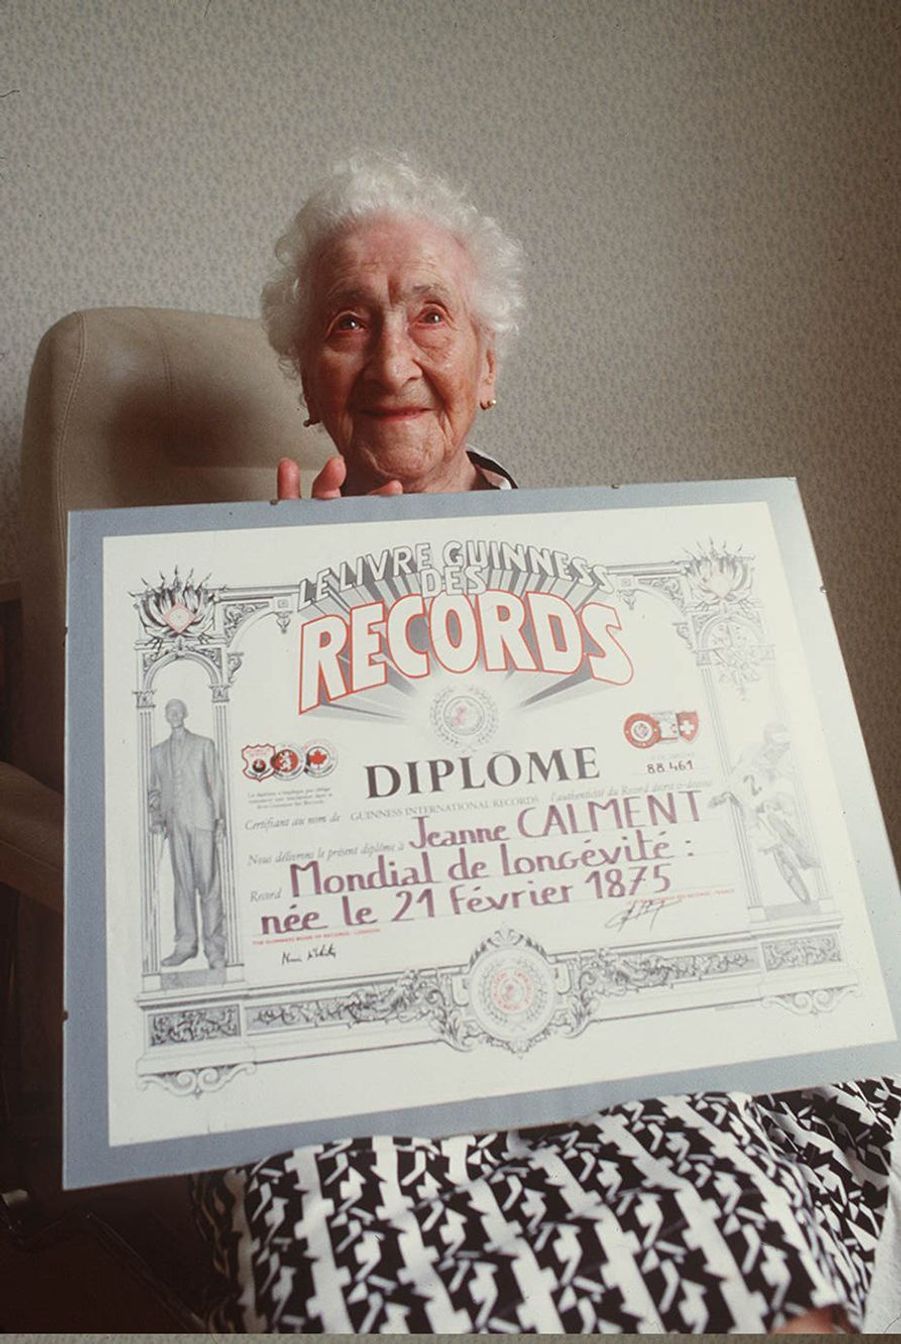 LE LIVRE GUINNESS
DES
RECORDS
DIPLÔME
88.461
Certifiant au nom de GUINNESS INTERNATIONAL RECORDS l'authenticité du Record décrit ci-dessous
Nous délivrons le présent diplôme à Jeanne CALMENT
Record Mondial de longévité :
née le 21 février 1875
THE GUINNESS BOOK OF RECORDS - LONDON